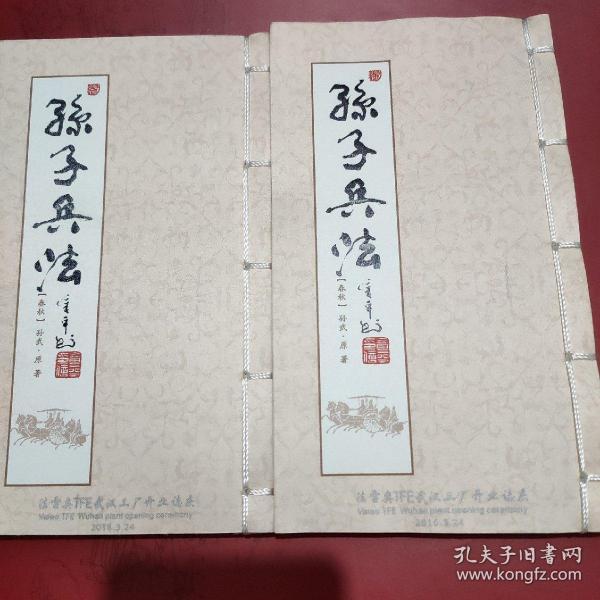 孫子兵法
【春秋】孙武·原著
法雷奥TFE武汉工厂开业志庆
Valeo TFE Wuhan plant opening ceremony
2016.3.24
孫子兵法
【春秋】孙武·原著
法雷奥TFE武汉工厂开业志庆
Valeo TFE Wuhan plant opening ceremony
2016.3.24
孔夫子旧书网
www.kongfz.com